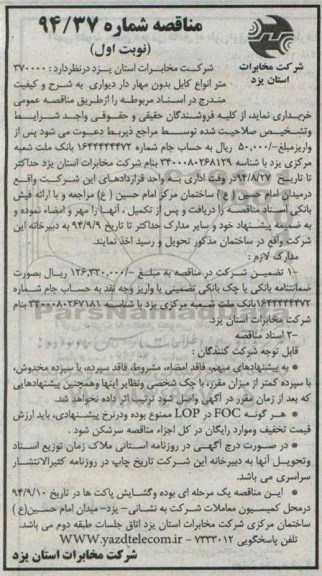 مناقصه شماره ۹۴/۳۷
(نوبت اول)
شرکت مخابرات
استان یزد
شرکت مخابرات استان یزد درنظردارد: ۳۷۰۰۰۰
متر انواع کابل بدون مهار دار دیواری به شرح و کیفیت
مندرج در اسناد مربوطه را ازطریق مناقصه عمومی
خریداری نماید، از کلیه فروشندگان حقیقی و حقوقی واجد شرایط
وتشخیص صلاحیت شده توسط مراجع ذیربط دعوت می شود پس از
واریزمبلغ -/۵۰,۰۰۰ ریال به حساب شماره ۱۶۴۴۴۴۴۴۷۲ بانک ملت شعبه
مرکزی یزد با شناسه ۳۴۰۰۰۸۰۲۶۸۱۲۹ بنام شرکت مخابرات استان یزد حداکثر
تا تاریخ ۹۴/۸/۲۷ در وقت اداری به واحد قراردادهای این شرکت واقع
درمیدان امام حسین (ع) ساختمان مرکز امام حسین (ع) مراجعه و با ارائه فیش
بانکی اسناد مناقصه را دریافت و پس از تکمیل ، آنها را مهر و امضاء نموده و
به ضمیمه پیشنهاد خود و سایر مدارک حداکثر تا تاریخ ۹۴/۹/۹ به دبیرخانه این
شرکت واقع در ساختمان مذکور تحویل و رسید اخذ نمایند.
مدارک لازم :
۱- تضمین شرکت در مناقصه به مبلغ -/۱۲۶,۳۲۰,۰۰۰ ریال بصورت
ضمانتنامه بانکی یا چک بانکی تضمینی یا واریز وجه نقد به حساب جام شماره
۱۶۴۴۴۴۴۴۷۲ بانک ملت شعبه مرکزی یزد با شناسه ۳۴۰۰۰۸۰۲۶۷۱۸۱ بنام
شرکت مخابرات استان یزد.
۲- اسناد مناقصه
قابل توجه شرکت کنندگان :
● به پیشنهادهای مبهم، فاقد امضاء، مشروط، فاقد سپرده، با سپرده مخدوش،
با سپرده کمتر از میزان مقرر، با چک شخصی ونظایر اینها وهمچنین پیشنهادهایی
که بعد از زمان مقرر در آگهی واصل شود ترتیب اثر داده نخواهد شد.
● هر گونه FOC در LOP ممنوع بوده ودرنرخ پیشنهادی، باید ارزش
قیمت تخفیف وموارد رایگان در کل اجزاء مناقصه سرشکن شود .
● در صورت درج آگهی در روزنامه استانی ملاک زمان توزیع اسناد
وتحویل آنها به دبیرخانه این شرکت تاریخ چاپ در روزنامه کثیرالانتشار
سراسری می باشد.
● این مناقصه یک مرحله ای بوده وگشایش پاکت ها در تاریخ ۹۴/۹/۱۰
درمحل کمیسیون معاملات شرکت به نشانی - یزد- میدان امام حسین(ع)
ساختمان مرکزی شرکت مخابرات استان یزد اتاق جلسات طبقه دوم می باشد.
تلفن پاسخگویی ۷۳۳۳۰۱۲ - WWW.yazdtelecom.ir
شرکت مخابرات استان یزد